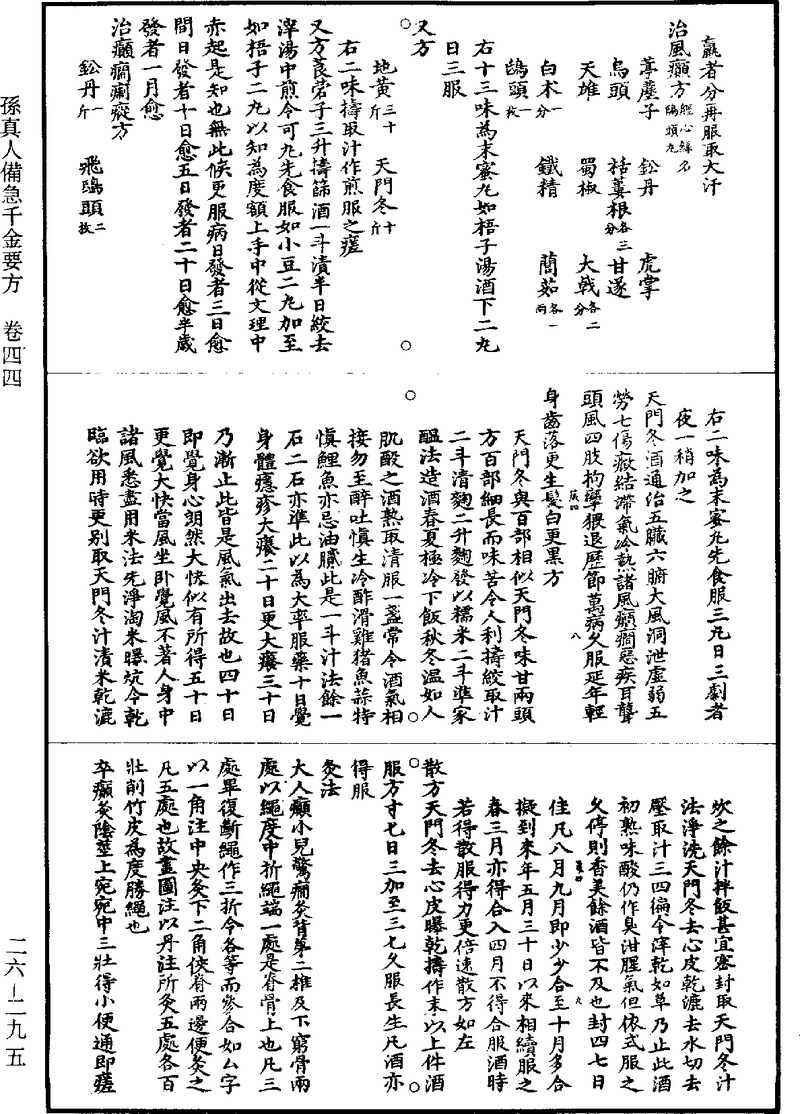 羸者分再服取大汗
治風癲方經心錄名鴟頭丸
葶藶子　鈆丹　虎掌
烏頭　栝蔞根各三分　甘遂
天雄　蜀椒　大戟各二分
白术一分　鐵精　䕡茹各一兩
鴟頭一枚
右十三味為末蜜丸如梧子湯酒下二丸
日三服
又方
地黃三十斤　天門冬十斤
右二味擣取汁作煎服之瘥
又方莨菪子三升擣篩酒一斗漬半日絞去
滓湯中煎令可丸先食服如小豆二丸加至
如梧子二丸以知為度額上手中從文理中
赤起是知也無此候更服病日發者三日愈
間日發者十日愈五日發者二十日愈半歲
發者一月愈
治癲癇瘈瘲方
鈆丹一斤　飛鴟頭二枚
右二味為末蜜丸先食服三丸日三劇者
夜一稍加之
天門冬酒通治五臟六腑大風洞泄虛弱五
勞七傷癥結滯氣冷熱諸風癲癇惡疾耳聾
頭風四肢拘攣猥退歷節萬病久服延年輕
身齒落更生髮白更黑方
天門冬與百部相似天門冬味甘兩頭
方百部細長而味苦令人利擣絞取汁
二斗漬麴二升麴發以糯米二斗準家
醞法造酒春夏極冷下飯秋冬溫如人
肌酘之酒熟取清服一盞常令酒氣相
接勿至醉吐慎生冷酢滑雞猪魚蒜特
慎鯉魚亦忌油膩此是一斗汁法餘一
石二石亦準此以為大率服藥十日覺
身體癮疹大癢二十日更大癢三十日
乃漸止此皆是風氣出去故也四十日
即覺身心朗然大快似有所得五十日
更覺大快當風坐卧覺風不著人身中
諸風悉盡用米法先淨淘米曝炕令乾
臨欲用時更別取天門冬汁漬米乾漉
炊之餘汁拌飯甚宜密封取天門冬汁
法淨洗天門冬去心皮乾漉去水切去
壓取汁三四徧令滓乾如草乃止此酒
初熟味酸仍作臭泔腥氣但依式服之
久停則香美餘酒皆不及也封四七日
佳凡八月九月即少少合至十月多合
擬到來年五月三十日以來相續服之
春三月亦得合入四月不得合服酒時
若得散服得力更倍速散方如左
散方天門冬去心皮曝乾擣作末以上件酒
服方寸匕日三加至三匕久服長生凡酒亦
得服
灸法
大人癲小兒驚癇灸背第二椎及下窮骨兩
處以繩度中折繩端一處是脊骨上也凡三
處畢復斷繩作三折令各等而參合如厶字
以一角注中央灸下二角俠脊兩邊便灸之
凡五處也故畫圖注以丹注所灸五處各百
壯削竹皮為度勝繩也
卒癲灸陰莖上宛宛中三壯得小便通即瘥
孫真人備急千金要方　卷四四
二六—二九五